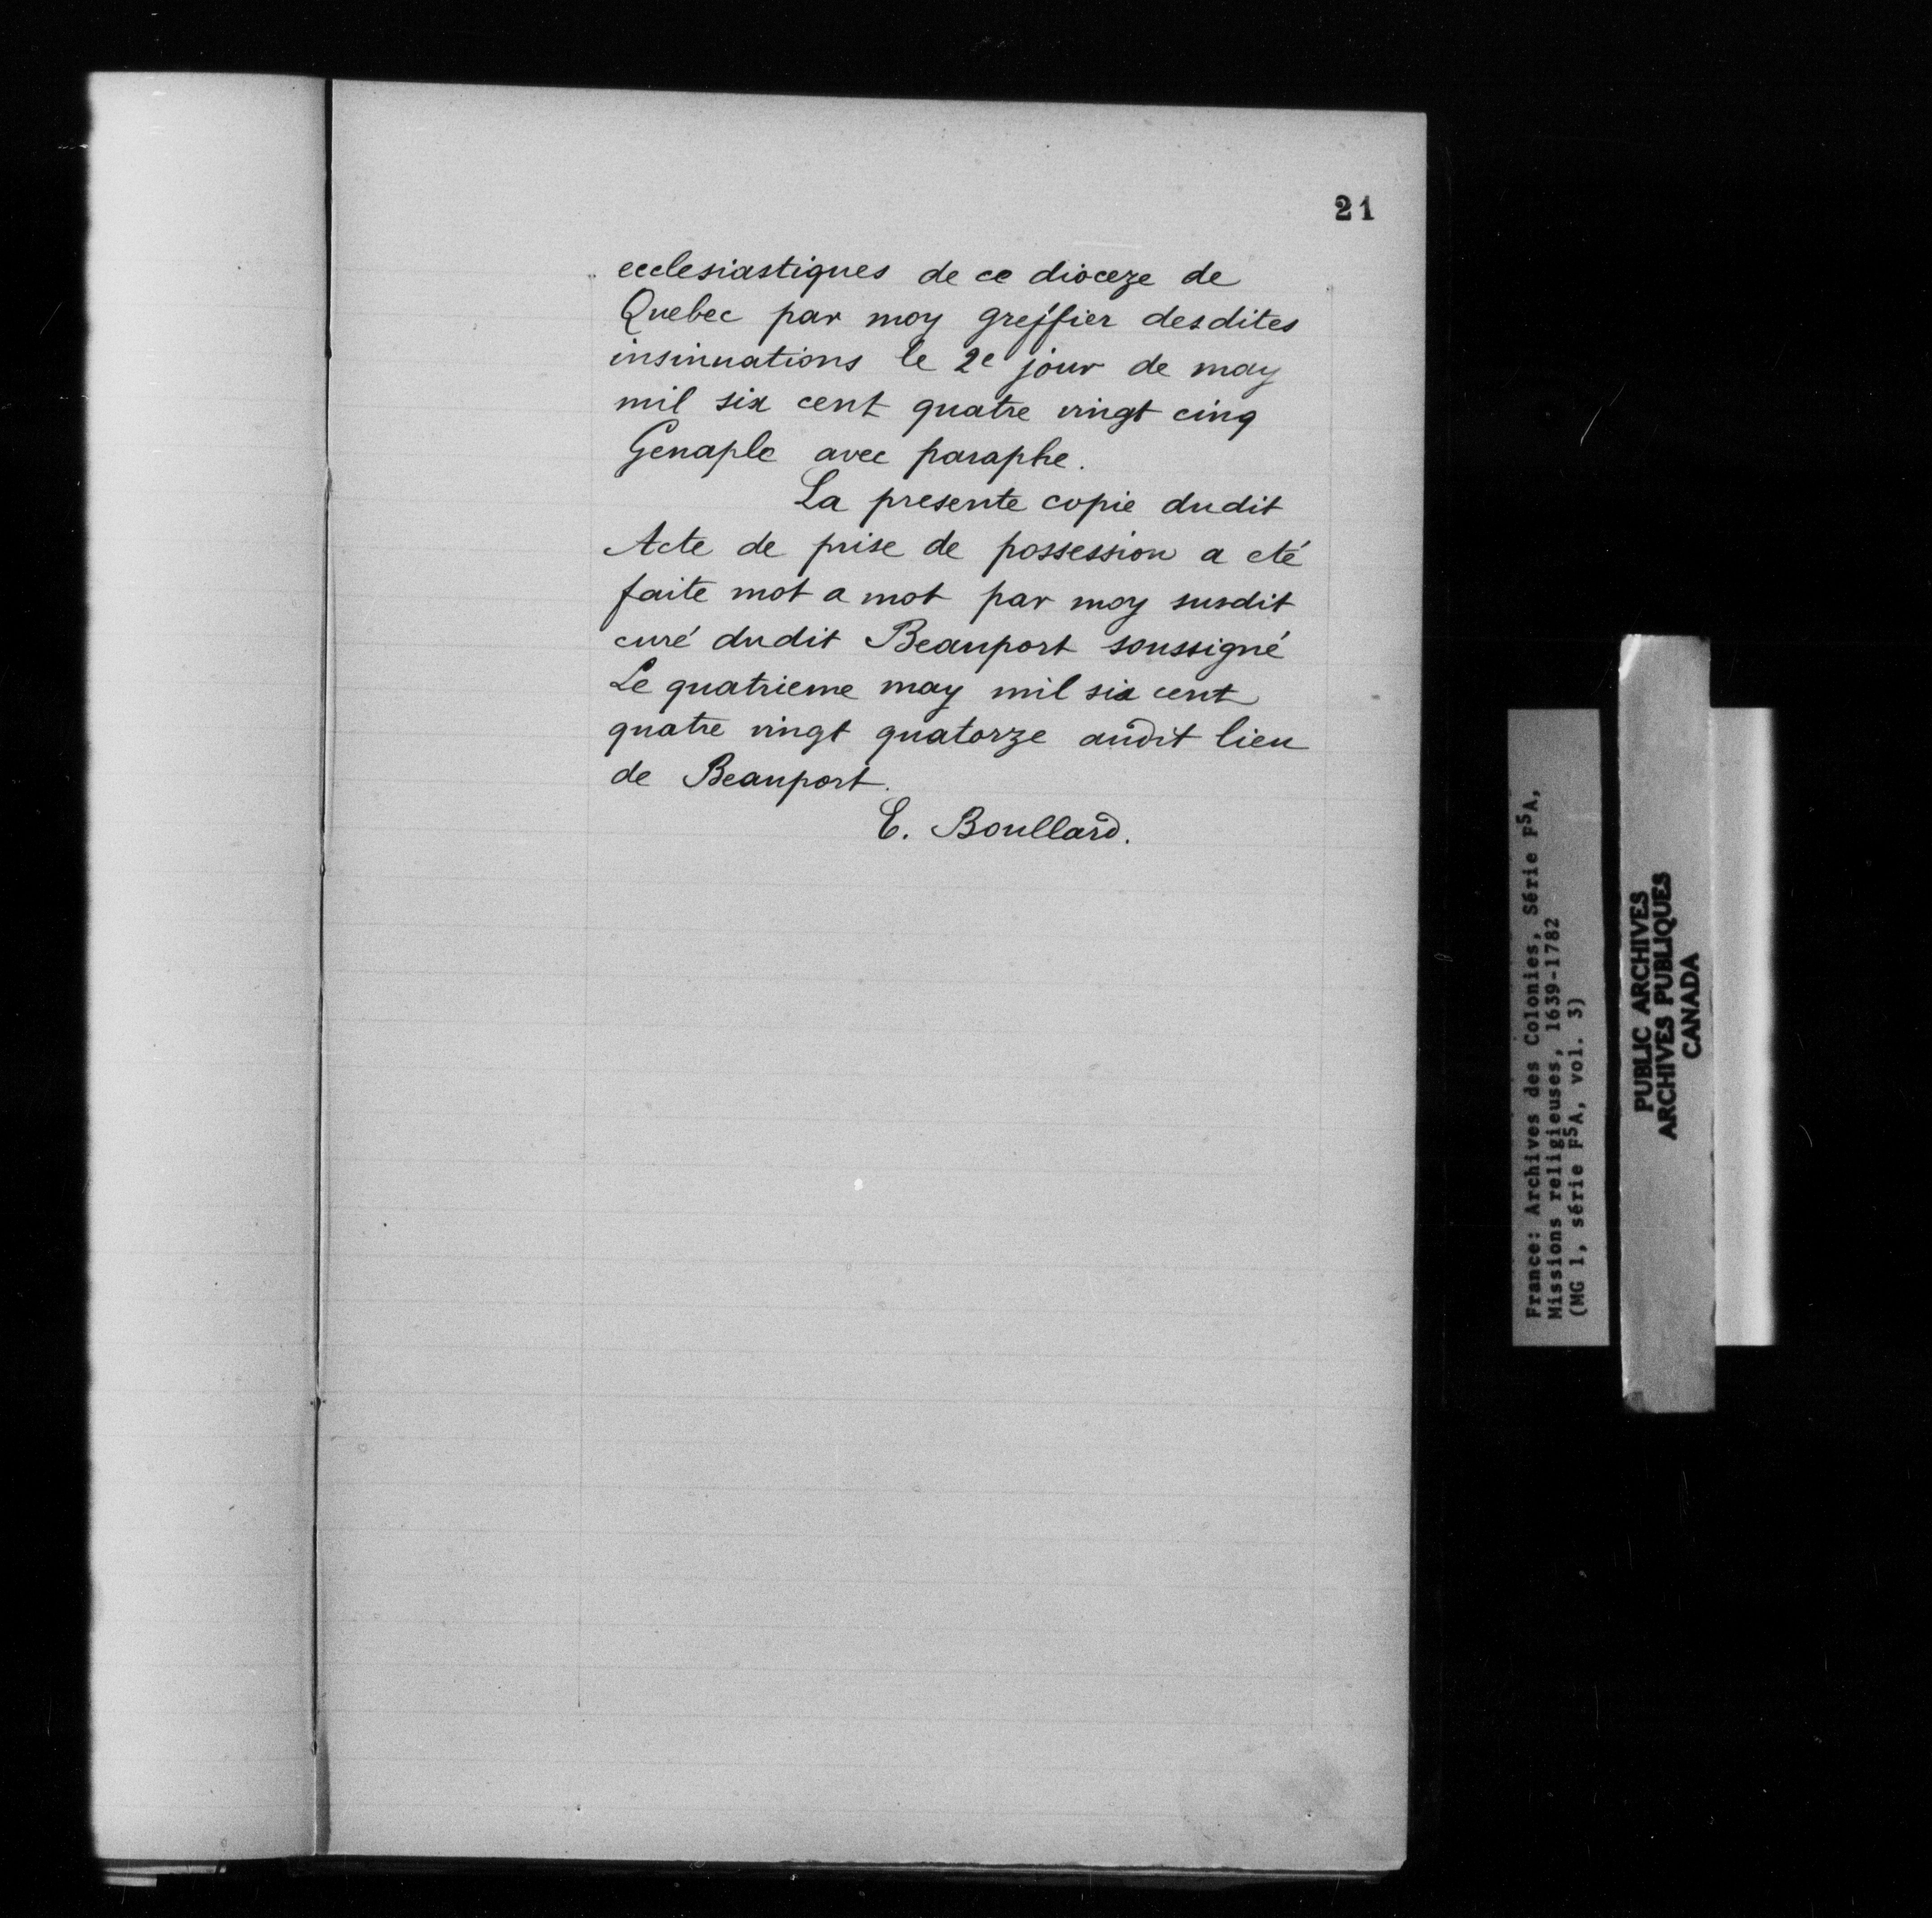 21
ecclesiastiques de ce dioceze de
Quebec par moy greffier desdites
insinuations le 2e jour de may
mil six cent quatre vingt cinq
Genaple avec paraphe.
La presente copie dudit
Acte de prise de possession a eté
faite mot a mot par moy susdit
curé dudit Beauport soussigné
Le quatrieme may mil six cent
quatre vingt quatorze audit lieu
de Beauport.
E. Boullard.
France: Archives des Colonies, Série F5A,
Missions religieuses, 1639-1782
(MG 1, série F5A, vol. 3)
PUBLIC ARCHIVES
ARCHIVES PUBLIQUES
CANADA